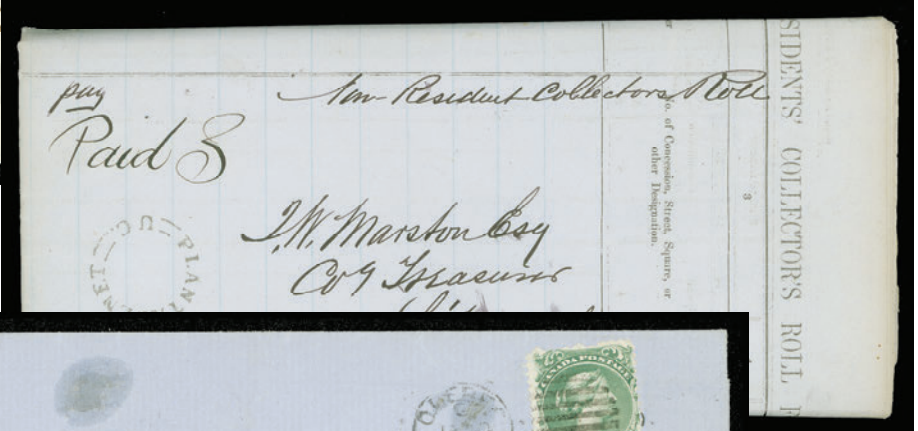 pay
Non Resident Collectors Roll
Paid 3
T.W. Marston Esq
Coy Treasurer
PLANT
NET
UC
No. of Concession, Street, Square, or
other Designation.
3
SIDENTS' COLLECTOR'S ROLL F
CANADA POSTAGE